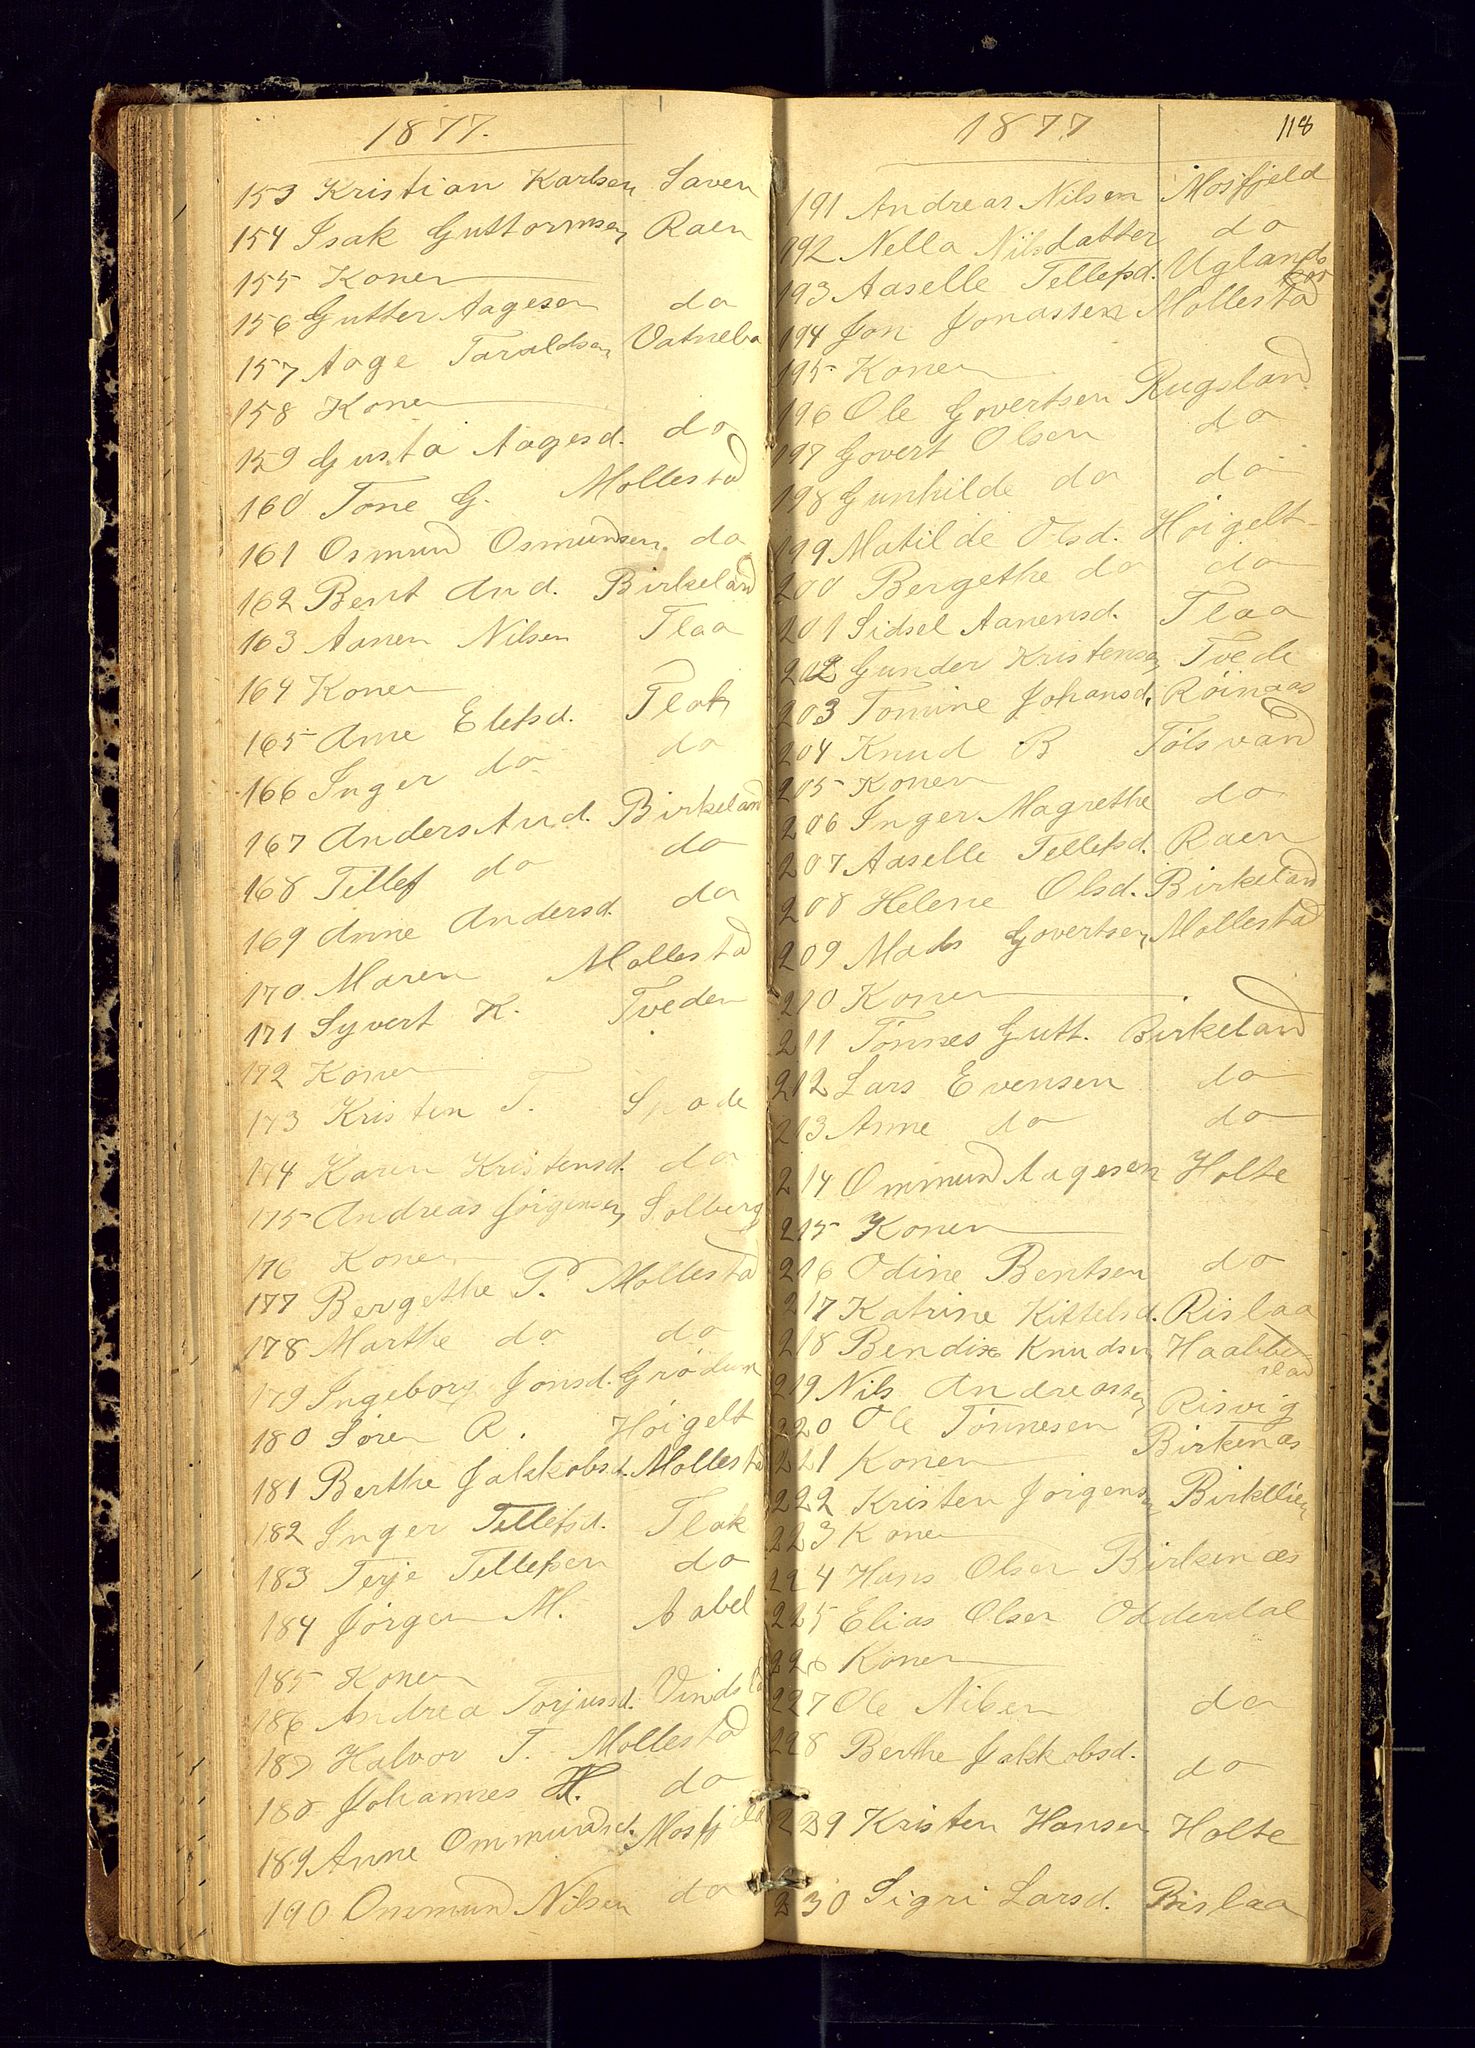 1877.
153 Kristian Karlsen Saven
154 Isak Guttormsen Raen
155 Konen
156 Gutter Aagesen do
157 Aage Taraldsen Vatnebo
158 Konen
159 Gusta Aagesd. do
160 Tone G. Mollestad
161 Osmund Osmundsen do
162 Bent And. Birkeland
163 Aanen Nilsen Flaa
164 Konen
165 Ane Elefsd. Flak
166 Inger do do
167 Anders And. Birkeland
168 Tellef do do
169 Anne Andersd. do
170 Maren Mollestad
171 Syvert K. Tveden
172 Konen
173 Kristen T. Spode
174 Karen Kristensd. do
175 Andreas Jørgensen Solberg
176 Konen
177 Bergethe T. Mollestad
178 Marthe do do
179 Ingeborg Jonsd. Grødum
180 Søren R. Høigelt
181 Berthe Jakkobsd. Mollestad
182 Inger Tellefsd. Flak
183 Terje Tellefsen do
184 Jørgen M. Aabel
185 Konen
186 Andrea Torjussd. Vindsla
187 Halvor T. Mollestad
188 Johannes H. do
189 Anne Ommundsd. Mosfjeld
190 Ommund Nilsen do
1877
118
191 Andreas Nilsen Mosfjeld
192 Nella Nilsdatter do
193 Aaselle Tellefsd. Uglands
194 Jon Jonassen Mollestad
195 Konen
196 Ole Govertsen Rugsland
197 Govert Olsen do
198 Gunhilde do do
199 Matilde Olsd. Høigelt
200 Bergethe do do
201 Sidsel Aanensd. Flaa
202 Gunder Kristensen Tvede
203 Tomine Johansd. Røinaas
204 Knud B Tolsvand
205 Konen
206 Inger Magrethe do
207 Aaselle Tellefsd. Raen
208 Helene Olsd. Birkeland
209 Mads Govertsen Mollestad
210 Konen
211 Tønnes Gutt. Birkeland
212 Lars Evensen do
213 Anne do do
214 Ommund Aagesen Holte
215 Konen
216 Odine Bentsen do
217 Katrine Kittelsd. Rislaa
218 Bendix Knudsen Haabbe
stad
219 Nils Andreassen Risvig
220 Ole Tønnesen Birkenæs
221 Konen
222 Kristen Jørgensen Birkelien
223 Konen
224 Hans Olsen Birkenæs
225 Elias Olsen Odderdal
226 Konen
227 Ole Nilsen do
228 Berthe Jakkobsd. do
229 Kristen Hansen Holte
230 Sigri Larsd. Rislaa